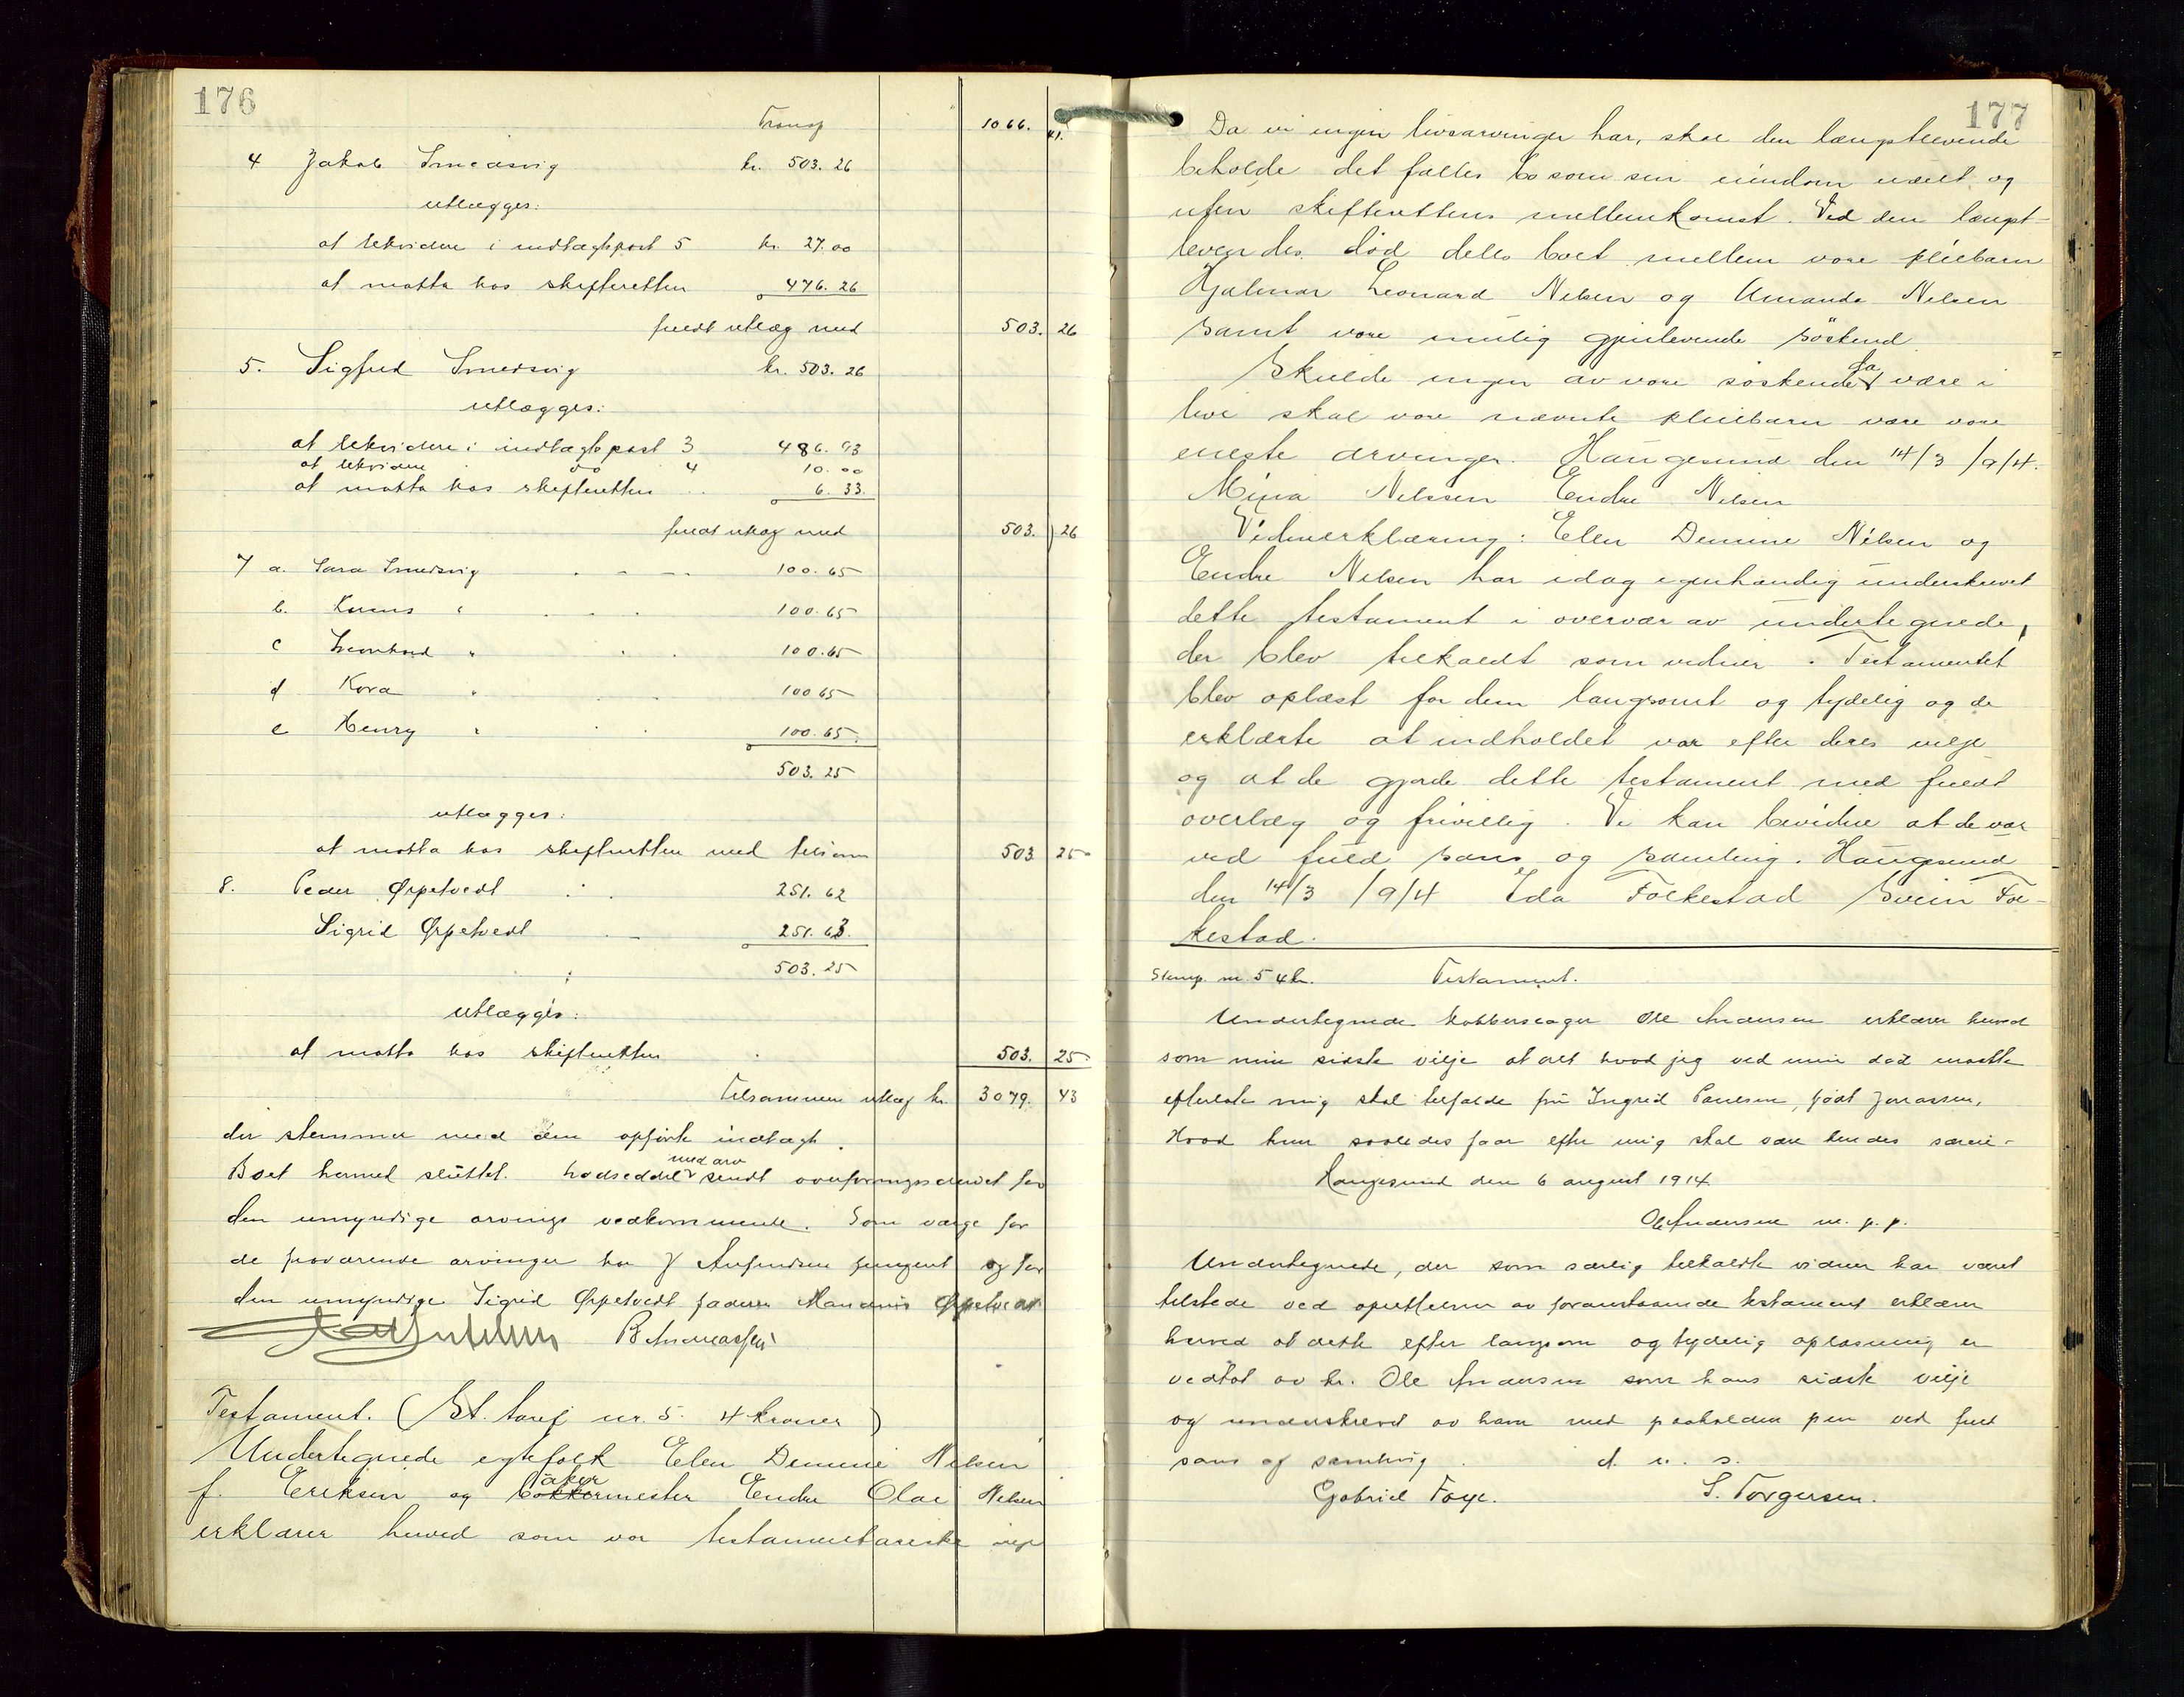 176
Transp 1066. 41.
4 Jakob Smedsvig kr. 503.26
utlægges:
at likvidere i indtægtspost 5 kr. 27.00
at motta hos skifteretten 476.26
fuldt utlæg med 503. 26
5. Sigfred Smedsvig kr. 503.26
utlægges:
at likvidere i indtægtspost 3 486.93
at likvidere do 4 10.00
at motta hos skifteretten 6.33
fuldt utlæg med 503. 26
7 a. Sara Smedsvig 100.65
b. " 100.65
c Leonhard " 100.65
d Kora " 100 65
e Henry " 100.65
503.25
utlægges:
at motta hos skifteretten med tilsammen 503 25
8. Peder Ørpetvedt 251.62
Sigrid Ørpetvedt 251.63.
503.25
utlægges:
at motta hos skifteretten 503. 25
Tilsammen utlæg kr. 3079. 43
der stemmer med den opførte indtægt.
Boet hermed sluttet. Lodseddel med arv sendt overformynderiet for
den umyndige arvings vedkommende. Som værge for
de fraværende arvinger har J fungert og for
den umyndige Sigrid Ørpetvedt faderen Ørpetvedt
B Andreassen
Testament. (St. tarif nr. 5. 4 kroner)
Undertegnede egtefolk Elen Demine Nilsen
f. Eriksen og bøkkermester øker Endre Olai Nilsen
erklærer herved som vor testamentariske vilje
177
Da vi ingen livsarvinger har, skal den længstlevende
beholde det fælles bo som sin eiendom udelt og
uten skifterettens mellemkomst. Ved den længst-
levendes død deles boet mellem vore pleiebarn
Hjalmar Leonard Nilsen og Amanda Nilsen
samt vore mulig gjenlevende søskend
Skulde ingen av vore søskende da være i
live skal vore nævnte pleiebarn være vore
eneste arvinger. Haugesund den 14/3 1914.
Mina Nilssen Endre Nilsen
Vidneerklæring: Elen Demine Nilsen og
Endre Nilsen har idag egenhændig underskrevet
dette testament i overvær av undertegnede,
der blev tilkaldt som vidner. Testamentet
blev oplæst for dem langsomt og tydelig og de
erklærte at indholdet var efter deres vilje
og at de gjorde dette testament med fuldt
overlæg og frivillig. Vi kan bevidne at de var
ved fuld sans og samling. Haugesund
den 14/3 1914 Eda Folkestad Svein Fol-
kestad.
Stemp. nr. 5 4 kr. Testament.
Undertegnede kobberslager Ole Andersen erklærer herved
som min sidste vilje at alt hvad jeg ved min død maatte
efterlate mig skal tilfalde fru Ingrid Paulsen, født Jonassen.
Hvad hun saaledes faar efter mig skal være hendes særeie-
Haugesund den 6 august 1914
Ole Andersen m. p. p.
Undertegnede, der som særlig tilkaldte vidner har været
tilstede ved oprettelsen av foranstaaende testament erklærer
herved at dette efter langsom og tydelig oplæsning er
vedtat av hr. Ole Andersen som hans sidste vilje
og underskrevet av ham med paaholden pen ved fuld
sans og samling. d. u. s.
Gabriel Foye. S. Torgersen.